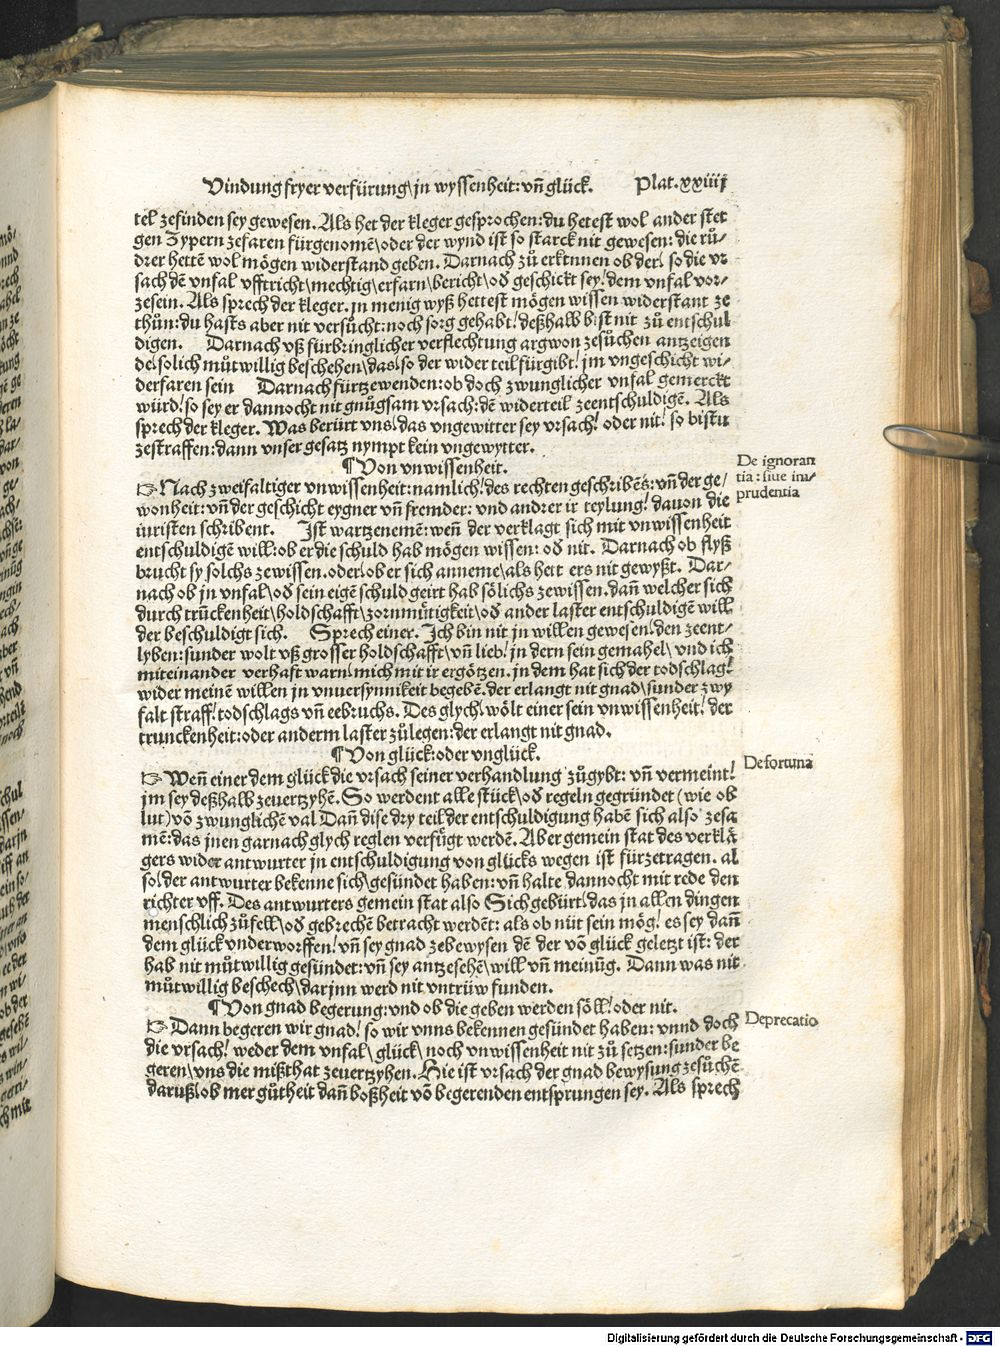 Vindung fryer verfürung\ jn wyssenheit: vñ glück. Plat. xxiiij
tel zefinden sey gewesen. Als het der kleger gesprochen: du hetest wol ander stet
gen Zypern zefaren fürgenomē\ oder der wynd ist so starck nit gewesen: die rů⸗
drer hettē wol mögen widerstand geben. Darnach zů erkennen ob der/ so die vr
sach dē vnfal vfftricht\ mechtig\ erfarn\ bericht\ oð geschickt sey/ dem vnfal vor⸗
zesein. Als sprech der kleger. jn menig wyß hettest mögen wissen widerstant ze
thůn: du hasts aber nit versůcht: noch sorg gehabt/ deßhalb bist nit zů entschul
digen. Darnach vß fürbringlicher verflechtung argwon zesůchen antzeigen
de/ solich můtwillig beschehen\ das/ so der wider teil fürgibt/ jm vngeschicht wi⸗
derfaren sein Darnach fürtzewenden: ob doch zwunglicher vnfal gemerckt
würd/ so sey er dannocht nit gnůgsam vrsach: dē widerteil zeentschuldigē. Als
sprech der kleger. Was berürt vns/ das vngewitter sey vrsach/ oder nit/ so bistu
zestraffen: dann vnser gesatz nympt kein vngewytter.
¶ Von vnwissenheit.
☞ Nach zweifaltiger vnwissenheit: namlich/ des rechten geschribēs: vñ der ge⸗
wonheit: vñ der geschicht eygner vñ fremder: vnd andrer ir teylung/ dauon die
iuristen schribent. Ist wartzenemē: weñ der verklagt sich mit vnwissenheit
entschuldigē will: ob er die schuld hab mögen wissen: oð nit. Darnach ob flyß
brucht sy solchs zewissen. oder/ ob er sich anneme\ als hett ers nit gewyßt. Dar⸗
nach ob jn vnfal\ oð sein eigē schuld geirt hab sölichs zewissen. dañ welcher sich
durch trůckenheit\ holdschafft\ zornmütigkeit\ oð ander laster entschuldigē will
der beschuldigt sich. Sprech einer. Ich bin nit jn willen gewesen/ den zeent⸗
lyben: sunder wolt vß grosser holdschafft\ vñ lieb/ jn dern sein gemahel\ vnd ich
miteinander verhaft warn/ mich mit ir ergötzen. jn dem hat sich der todschlag/
wider meinē willen jn vnuersynnikeit begebē. der erlangt nit gnad\ sunder zwy
falt straff/ todschlags vñ eebruchs. Des glych/ wölt einer sein vnwissenheit/ der
trunckenheit: oder anderm laster zůlegen: der erlangt nit gnad.
¶ Von glück: oder vnglück.
☞ Weñ einer dem glück die vrsach seiner verhandlung zůgybt: vñ vermeint/
jm sey deßhalb zeuertzyhē. So werdent alle stück\ oð regeln gegründet (wie ob
lut) vō zwunglichē val Dañ dise dry teil der entschuldigung habē sich also zesa
mē: das jnen garnach glych reglen verfügt werdē. Aber gemein stat des verklā
gers wider antwurter jn entschuldigung von glücks wegen ist fürzetragen. al
so/ der antwurter bekenne sich\ gesündet haben: vñ halte dannocht mit rede den
richter vff. Des antwurters gemein stat also Sich gebürt/ das jn allen dingen
menschlich zůfell\ oð gebrechē betracht werdēt: als ob nüt sein mög/ es sey dañ
dem glück vnderworffen/ vñ sey gnad zebewysen dē der vō glück geletzt ist: der
hab nit můtwillig gesündet: vñ sey antzesehē\ will vñ meinūg. Dann was nit
můtwillig beschech\ darjnn werd nit vntrüw funden.
¶ Von gnad begerung: vnd ob die geben werden söll/ oder nit.
☞ Dann begeren wir gnad/ so wir vnns bekennen gesündet haben: vnnd doch
die vrsach/ weder dem vnfal\ glück\ noch vnwissenheit nit zů setzen: sunder be
geren\ vns die mißthat zeuertzyhen. Hie ist vrsach der gnad bewysung zesůchē
daruß/ ob mer gůtheit dañ boßheit vō begerenden entsprungen sey. Als sprech
De ignoran
tia: siue im⸗
prudentia
De fortuna
Deprecatio
Digitalisierung gefördert durch die Deutsche Forschungsgemeinschaft - DFG